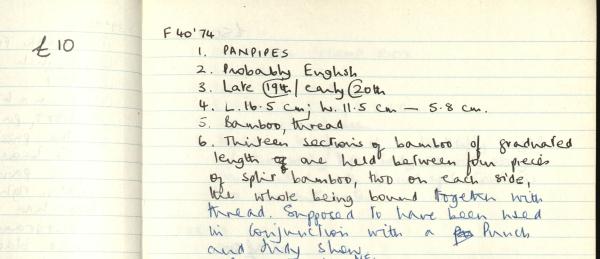 £10
F 40'74
1. PANPIPES
2. Probably English
3. Late 19th / early 20th
4. L. 16.5 cm; W. 11.5 cm — 5.8 cm.
5. Bamboo, thread
6. Thirteen sections of bamboo of graduated
length are held between four pieces
of split bamboo, two on each side,
the whole being bound together with
thread. Supposed to have been used
in conjunction with a Punch
and Judy show.